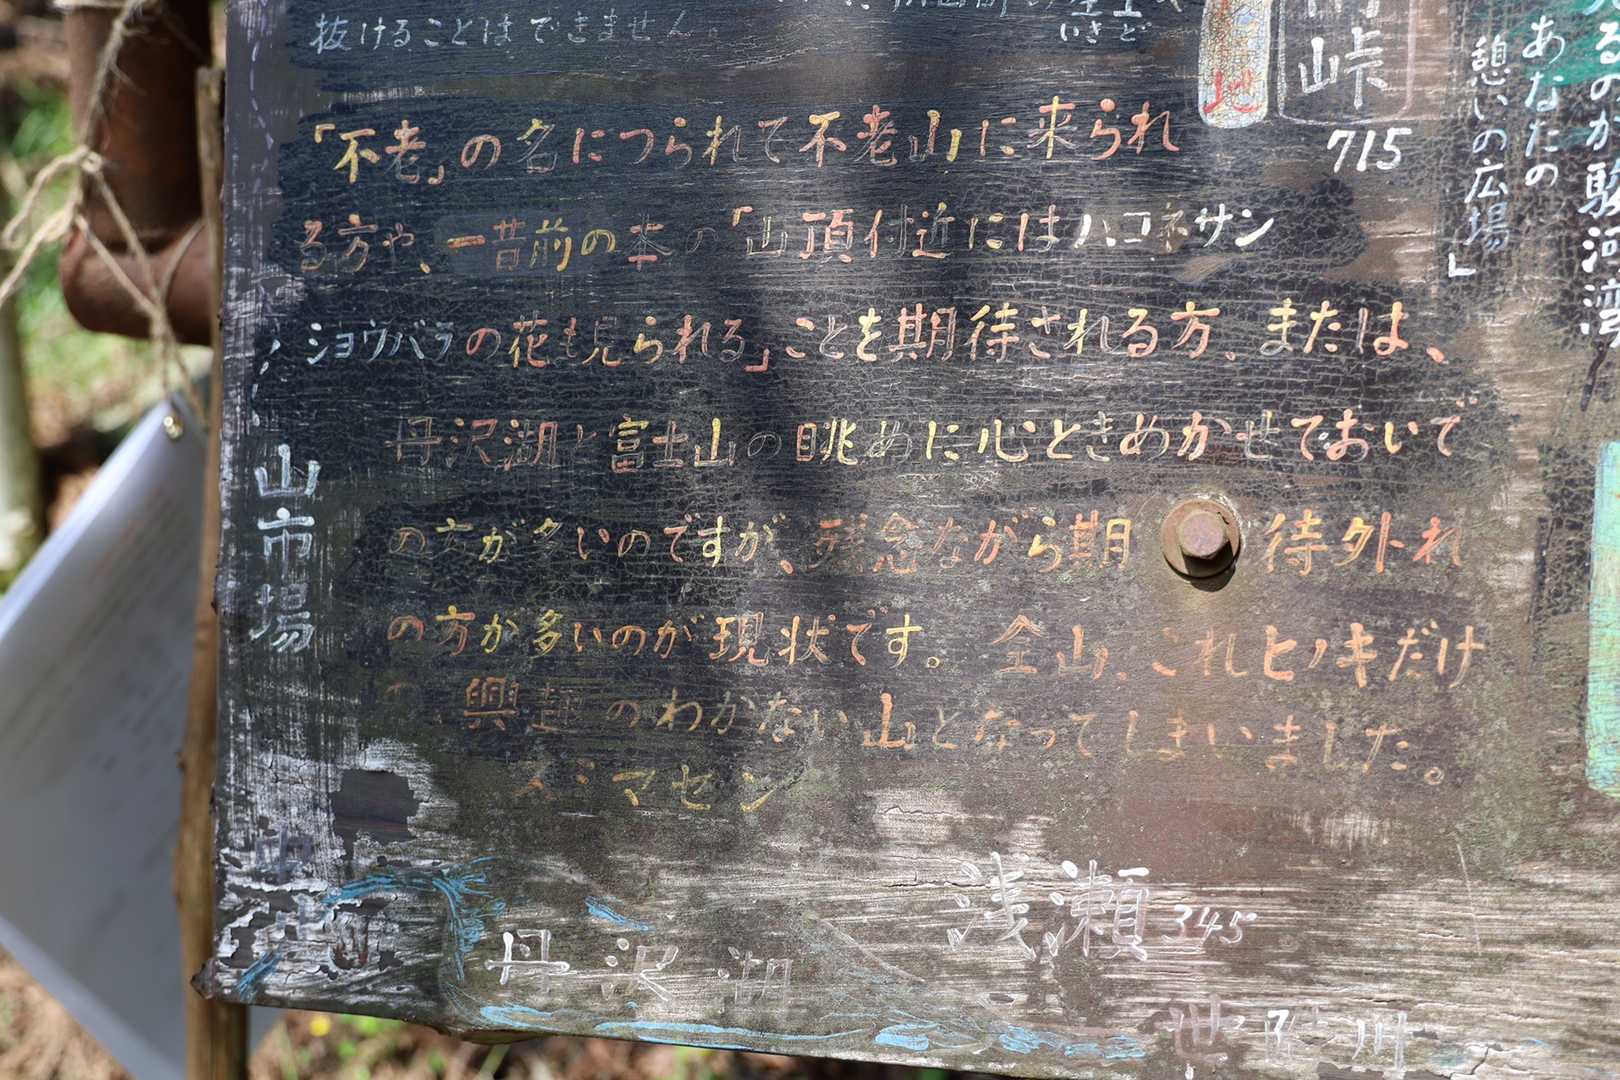 抜けることはできません。
いきど
峠
715
あなたの
憩いの広場」
るのが駿河湾
「不老」の名につられて不老山に来られ
る方や、一昔前の本の「山頂付近にはハコネサン
ショウバラの花も見られる」ことを期待される方、または、
丹沢湖と富士山の眺めに心ときめかせておいで
の方が多いのですが、残念ながら期待外れ
の方が多いのが現状です。 全山、これヒノキだけ
の、興趣のわかない山となってしまいました。
スミマセン
山市場
浅瀬 345
丹沢湖
世附川